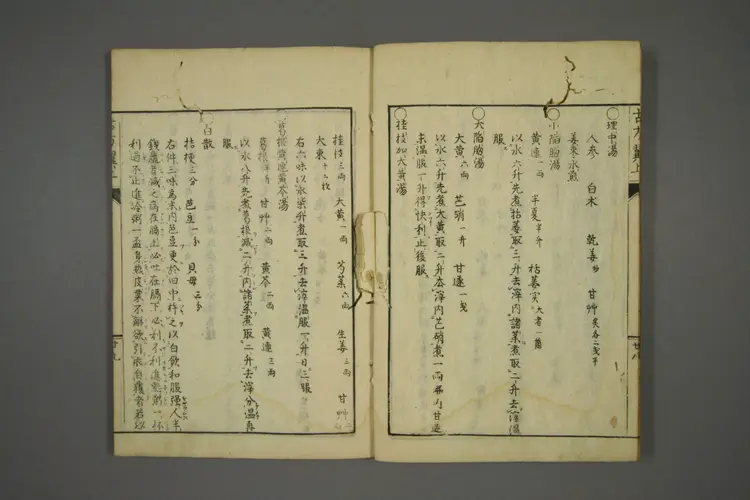 ○理中湯
人参 白朮 乾姜 甘艸
姜棗水煎
○小陥胸湯
黄連一両 半夏半升 栝蔞実大者一箇
以水六升先煮栝蔞取三升去滓内諸薬煮取二升去滓温
服
○大陥胸湯
大黄六両 芒硝一升 甘遂一戋
以水六升先煮大黄取二升去滓内芒硝煮一両沸内甘遂
末温服一升得快利止後服
○桂枝加大黄湯
桂枝三両 大黄一両 芍薬六両 生姜三両 甘艸二両
大棗十二枚
右六味以水柒升煮取三升去滓温服一升日三服
葛根黄連黄芩湯
葛根半斤 甘艸二両 黄芩二両 黄連三両
以水八升先煮葛根減二升内諸薬煮取二升去滓分温再
服
白散
桔梗三分 芭豆一分 貝母三分
右件三味為末内芭豆更於臼中杵之以白飲和服强人半
銭羸者減之病在膈上必吐在膈下必利不利進熱粥一杯
利過不止進冷粥一盃身熱皮粟不解欲引衣自覆者若以